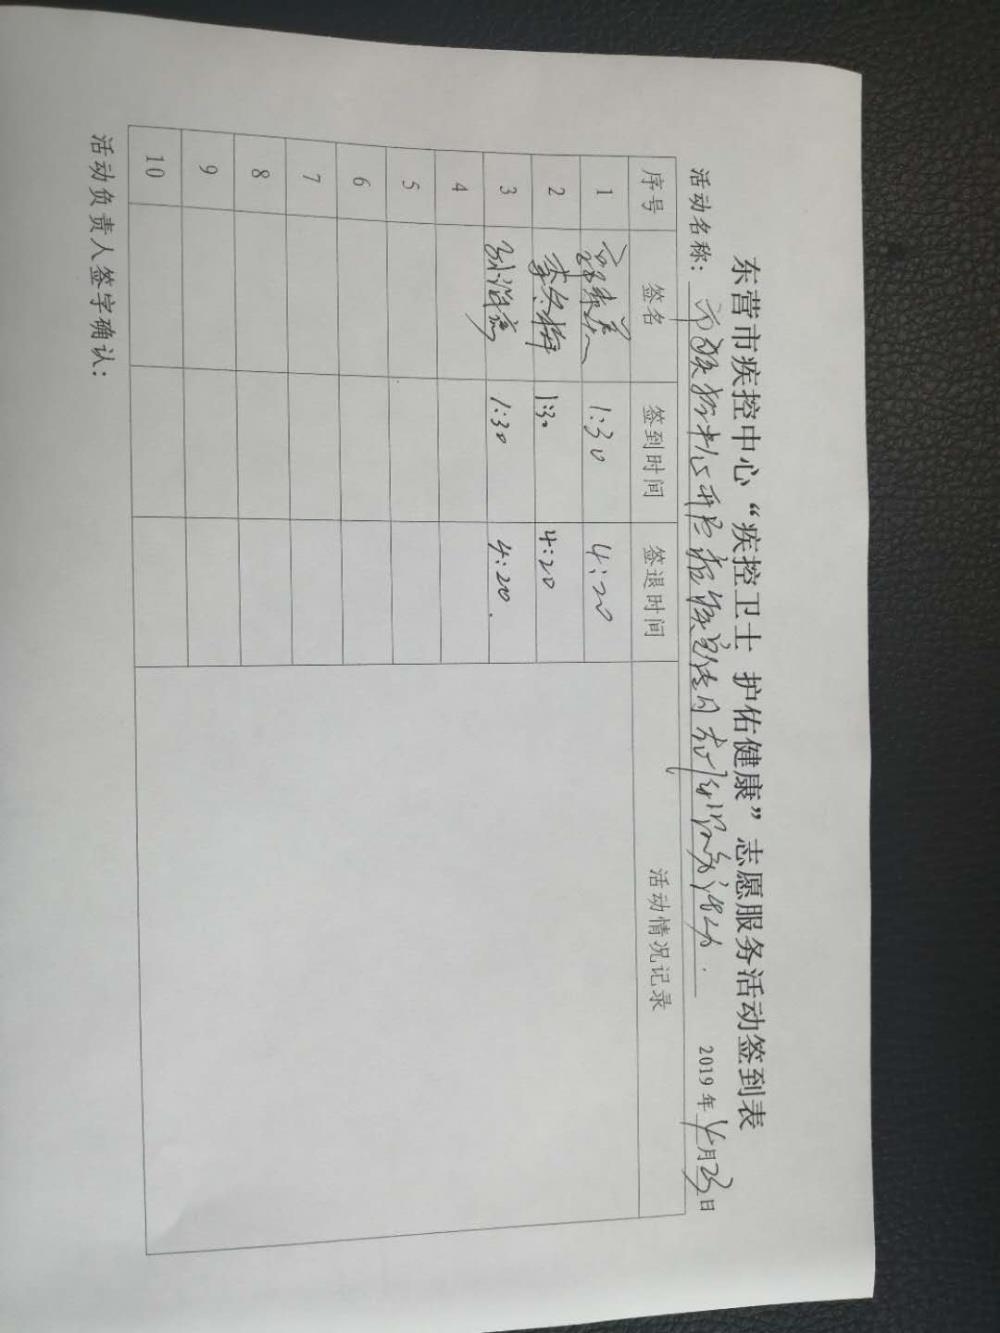 东营市疾控中心“疾控卫士 护佑健康”志愿服务活动签到表
活动名称：市疾控中心开展 宣传日 活动. 2019年4月23日
序号 签名 签到时间 签退时间 活动情况记录
1 1:30 4:20
2 李冬梅 1:30 4:20
3 1:30 4:20.
4
5
6
7
8
9
10
活动负责人签字确认：